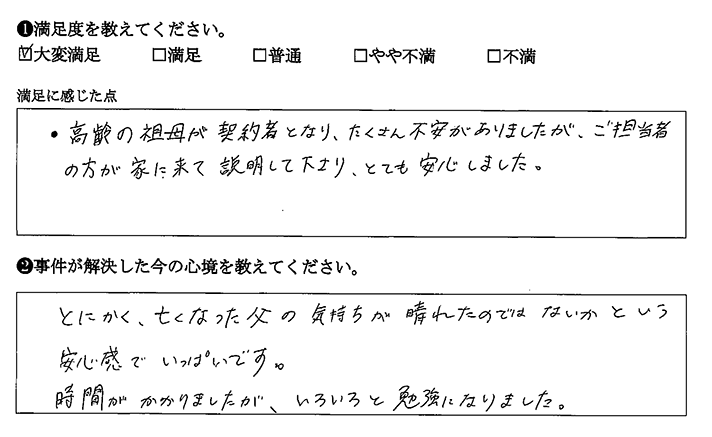 ❶満足度を教えてください。
☑大変満足 □満足 □普通 □やや不満 □不満
満足に感じた点
・高齢の祖母が契約者となり、たくさん不安がありましたが、ご担当者
の方が家に来て説明して下さり、とても安心しました。
❷事件が解決した今の心境を教えてください。
とにかく、亡くなった父の気持ちが晴れたのではないかという
安心感でいっぱいです。
時間がかかりましたが、いろいろと勉強になりました。